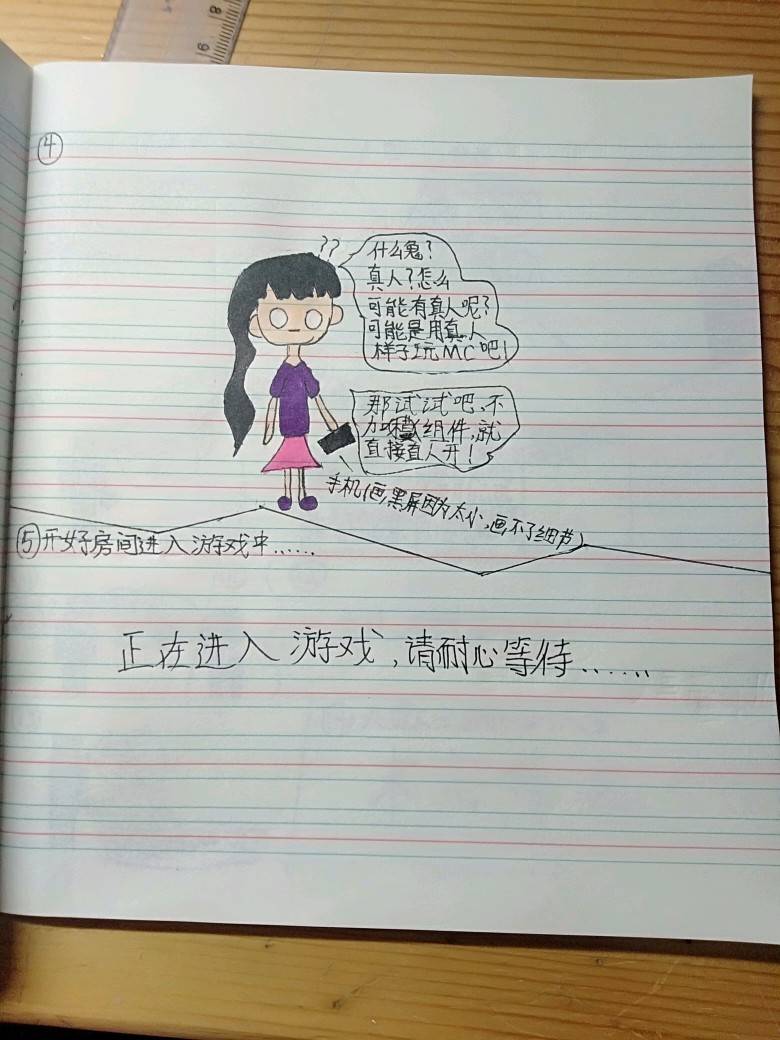 8
9
④
??
什么鬼?
真人?怎么
可能有真人呢?
可能是用真人
样子玩MC吧!
那试试吧、不
加模组件,就
直接直人开!
手机(画黑屏因为太小,画不了细节)
⑤开好房间进入游戏中……
正在进入游戏,请耐心等待……